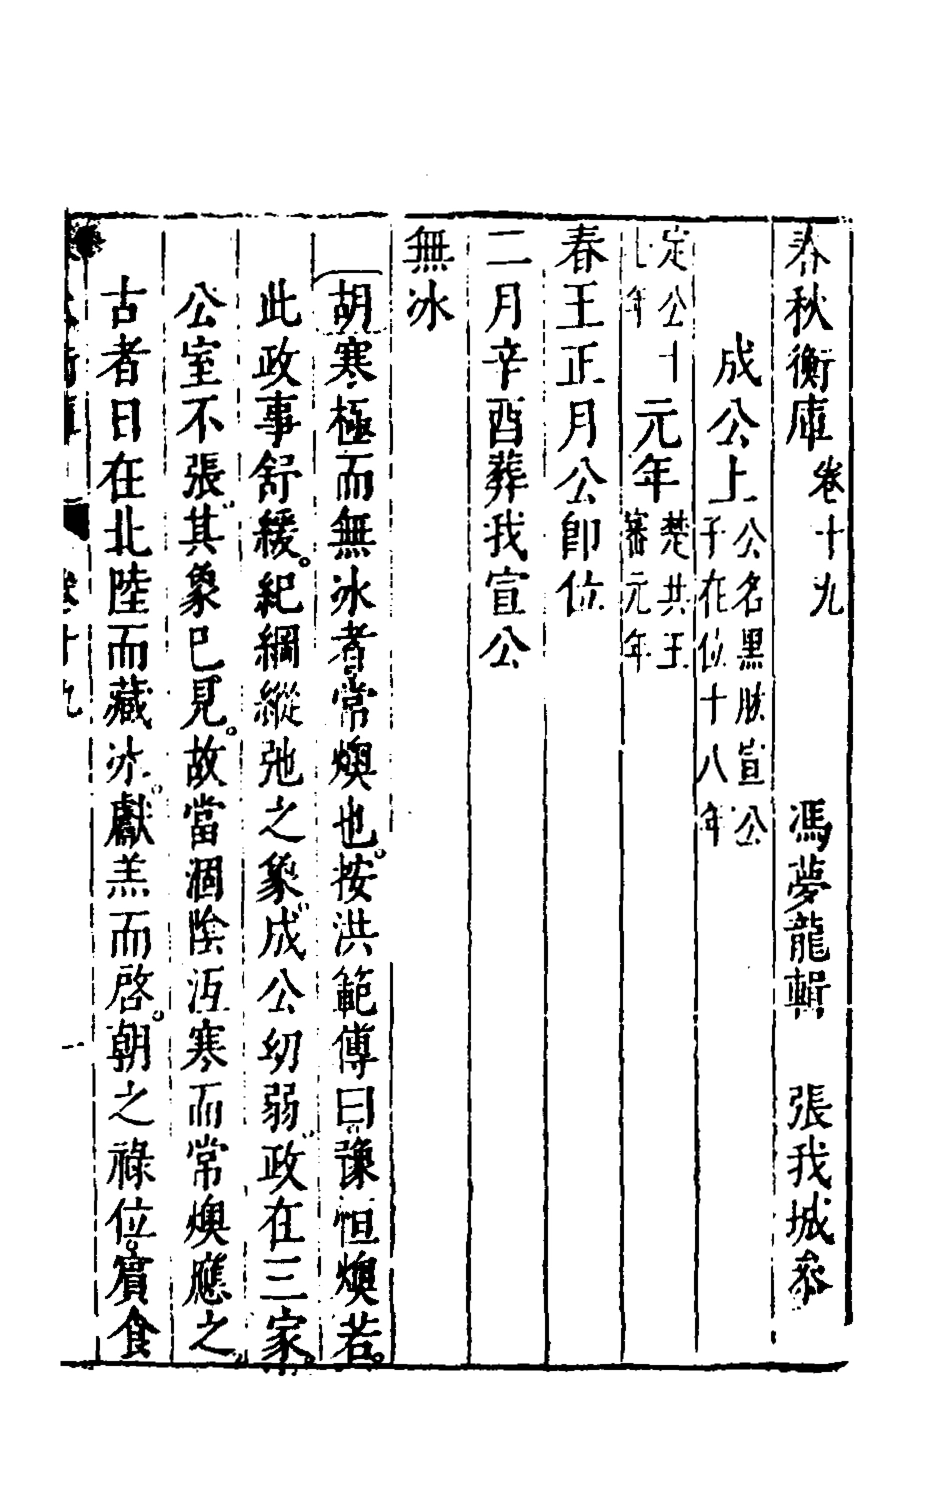 春秋衡庫卷十九　馮夢龍輯　張我城參
成公上公名黑肱宣公子在位十八年
定公十七年元年楚共王審元年
春王正月公卽位
二月辛酉葬我宣公
無冰
胡寒極而無冰者常燠也按洪範傳曰豫恒燠若
此政事舒緩紀綱縱弛之象成公幼弱政在三家
公室不張其象已見故當涸陰沍寒而常燠應之
古者日在北陸而藏冰獻羔而啓朝之祿位賓食
卷十九
一